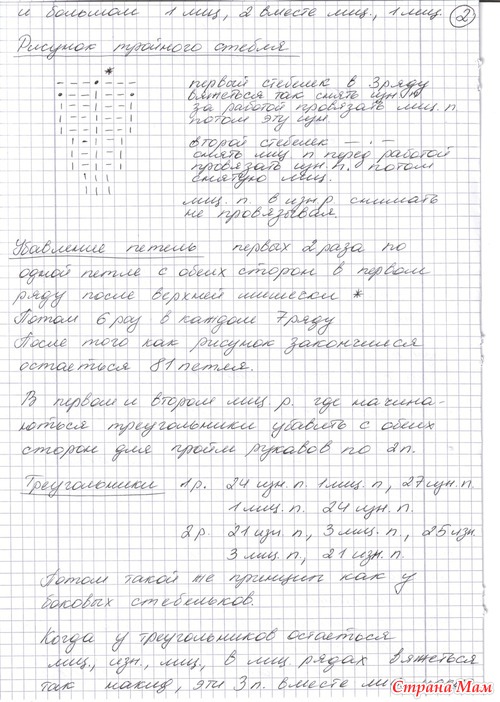 и большом 1 лиц, 2 вместе лиц., 1 лиц. 2
Рисунок тройного стебля
первый стебелек в 3 ряду
вяжеться так снять изн. п.
за работой провязать лиц. п.
потом эту изн.
второй стебелек — · —
снять лиц п перед работой
провязать изн. п. потом
снятую лиц.
лиц. п. в изн р. снимать
не провязывая.
Убавление петель первых 2 раза по
одной петле с обеих сторон в первом
ряду после верхней шишечки *
Потом 6 раз в каждом 7 ряду
После того как рисунок закончился
остаеться 81 петля.
В первом и втором лиц. р. где начина-
ються треугольники убавить с обеих
сторон для пройм рукавов по 2 п.
Треугольники 1 р. 24 изн. п. 1 лиц. п., 27 изн. п.
1 лиц. п. 24 изн. п.
2 р. 21 изн п., 3 лиц. п., 25 изн.
3 лиц. п, 21 изн. п.
Потом такой же принцип как у
боковых стебельков.
Когда у треугольников остаеться
лиц., изн., лиц., в лиц рядах вяжеться
так накид, эти 3 п. вместе
Страна Мам